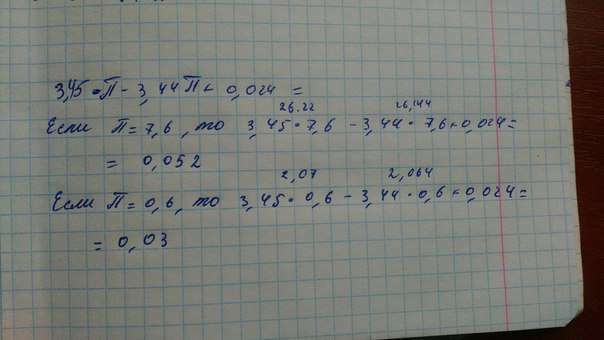 3,45 · П - 3,44П + 0,024 =
26.22 26,144
Если П = 7,6, то 3,45 · 7,6 - 3,44 · 7,6 + 0,024 =
= 0,052
2,07 2,064
Если П = 0,6, то 3,45 · 0,6 - 3,44 · 0,6 + 0,024 =
= 0,03